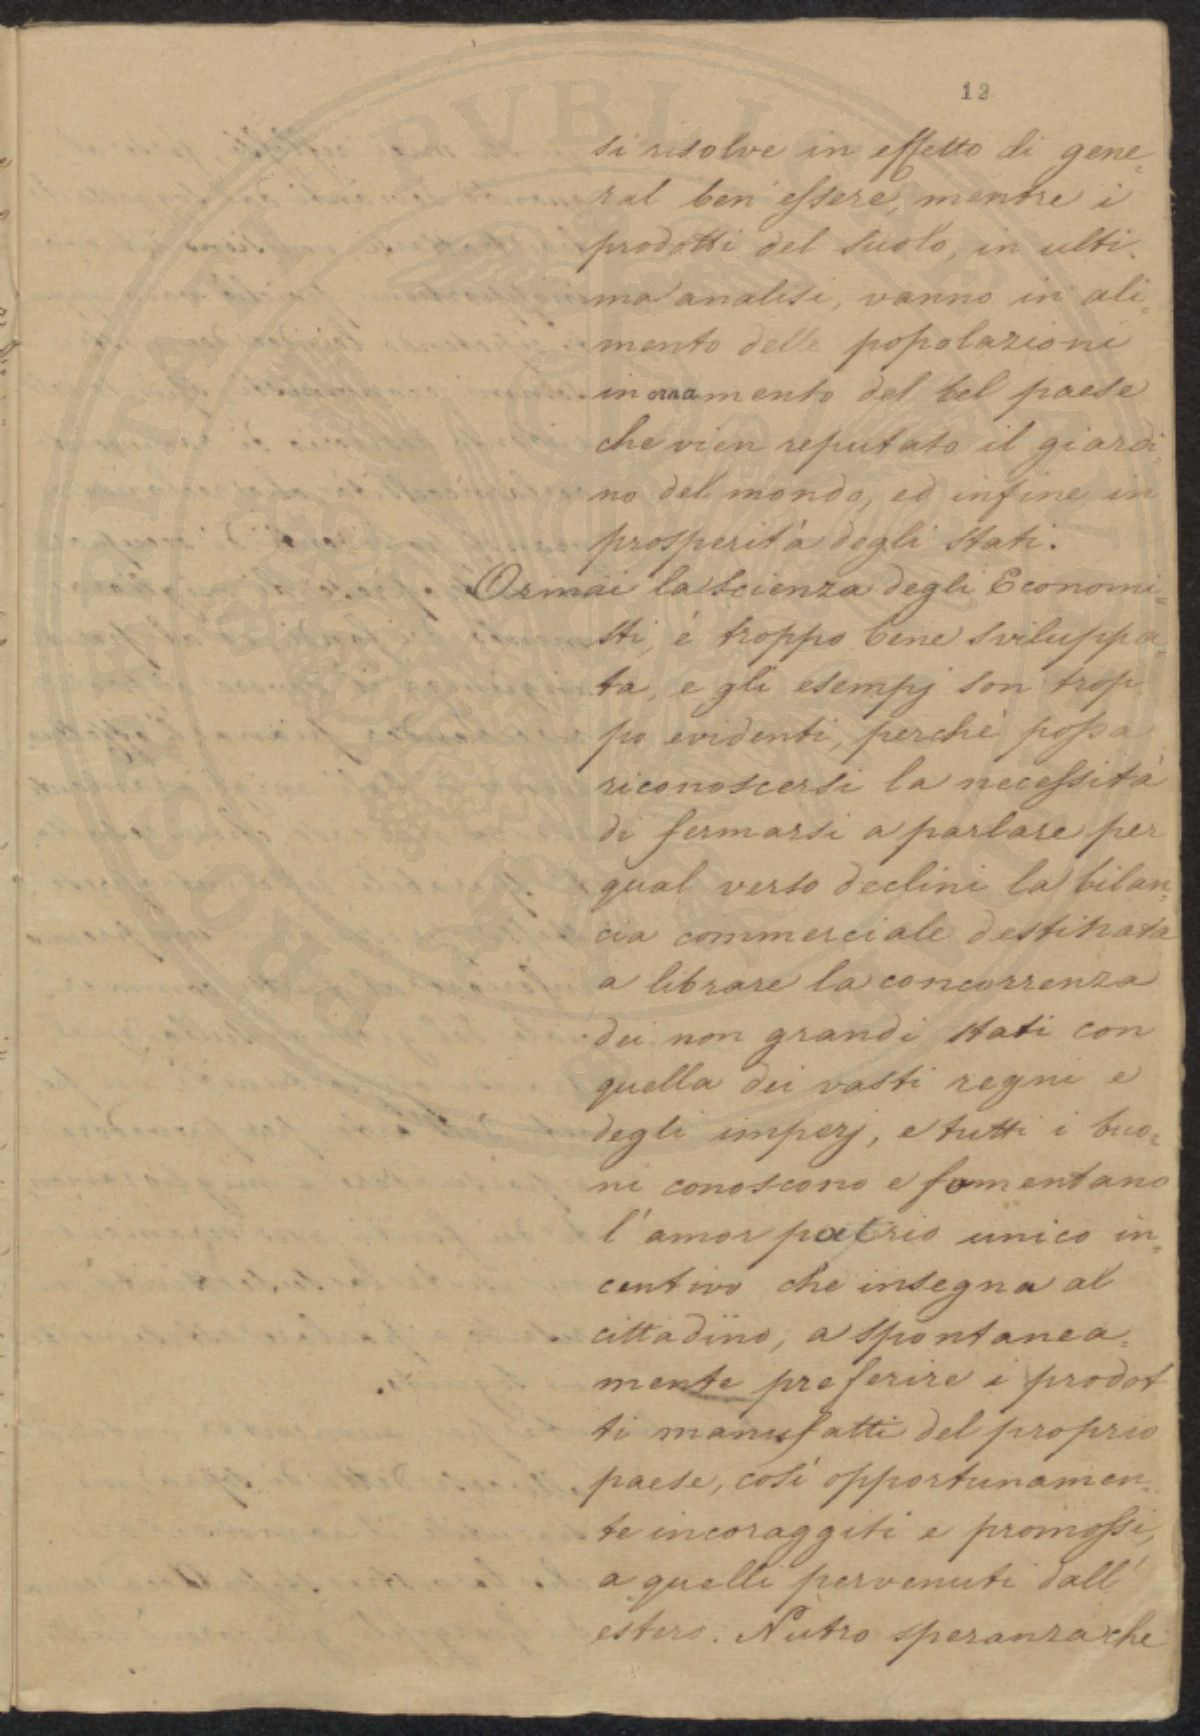 12
si risolve in effetto di gene=
ral ben essere, mentre i
prodotti del suolo, in ulti=
ma analisi, vanno in ali=
mento delle popolazioni
in ornamento del bel paese
che vien reputato il giardi=
no del mondo, ed infine in
prosperità degli Stati.
Ormai la scienza degli Economi=
sti, è troppo bene sviluppa=
ta, e gli esempj son trop
po evidenti, perchè possa
riconoscersi la necessità
di fermarsi a parlare per
qual verso declini la bilan=
cia commerciale destinata
a librare la concorrenza
dei non grandi stati con
quella dei vasti regni e
degli imperj, e tutti i buo=
ni conoscono e fomentano
l'amor patrio unico in=
centivo che insegna al
cittadino, a spontanea=
mente preferire i prodot
ti manufatti del proprio
paese, così opportunamen=
te incoraggiti e promossi,
a quelli pervenuti dall'
estero. Nutro speranza che